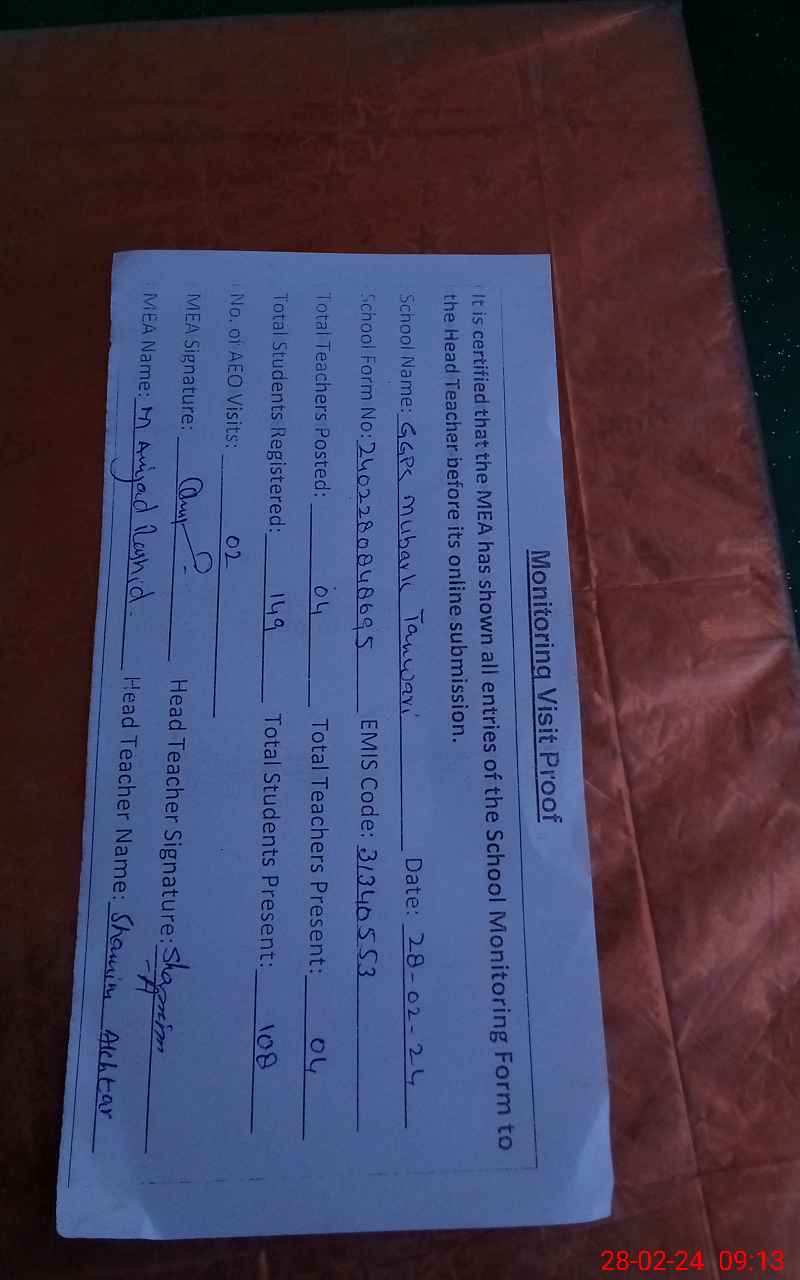 Monitoring Visit Proof
It is certified that the MEA has shown all entries of the School Monitoring Form to
the Head Teacher before its online submission.
School Name: GGPS Mubark Tanwari Date: 28-02-24
School Form No: 2402280848695 EMIS Code: 31340553
Total Teachers Posted: 04 Total Teachers Present: 04
Total Students Registered: 149 Total Students Present: 108
No. of AEO Visits: 02
MEA Signature: Head Teacher Signature: Shamim
MEA Name: M Amjad Rashid. Head Teacher Name: Shamim Akhtar
28-02-24 09:13